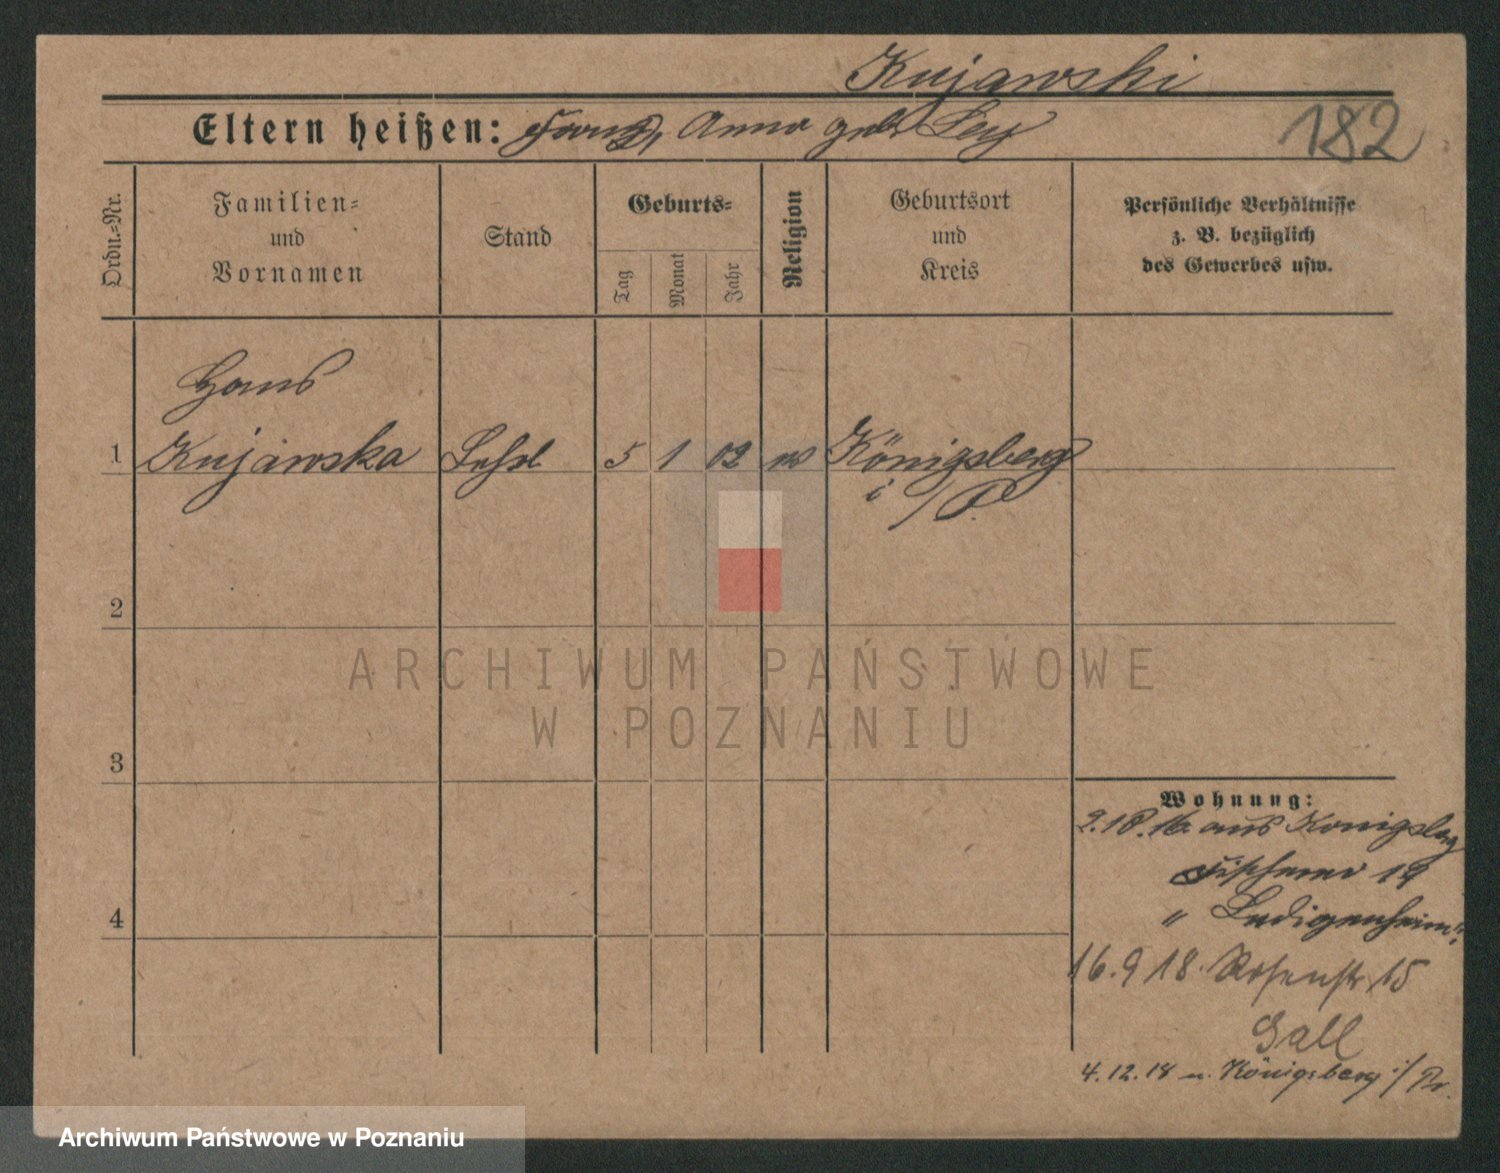 Kujawski
182
Eltern heißen: Franz, Anna geb Ley
Ordn.-Nr.
Familien-
und
Vornamen
Stand
Geburts-
Tag
Monat
Jahr
Religion
Geburtsort
und
Kreis
Persönliche Verhältnisse
z. B. bezüglich
des Gewerbes usw.
Hans
1 Kujawska 5 1 02 Königsberg
i/P.
2
3
4
Wohnung:
2.10.16. aus Königsberg
Fischerei
" Ledigenheim"
16.9 18. Rosenstr 15
Gall
4.12.18 n. Königsberg i/Pr.
ARCHIWUM PAŃSTWOWE
W POZNANIU
Archiwum Państwowe w Poznaniu